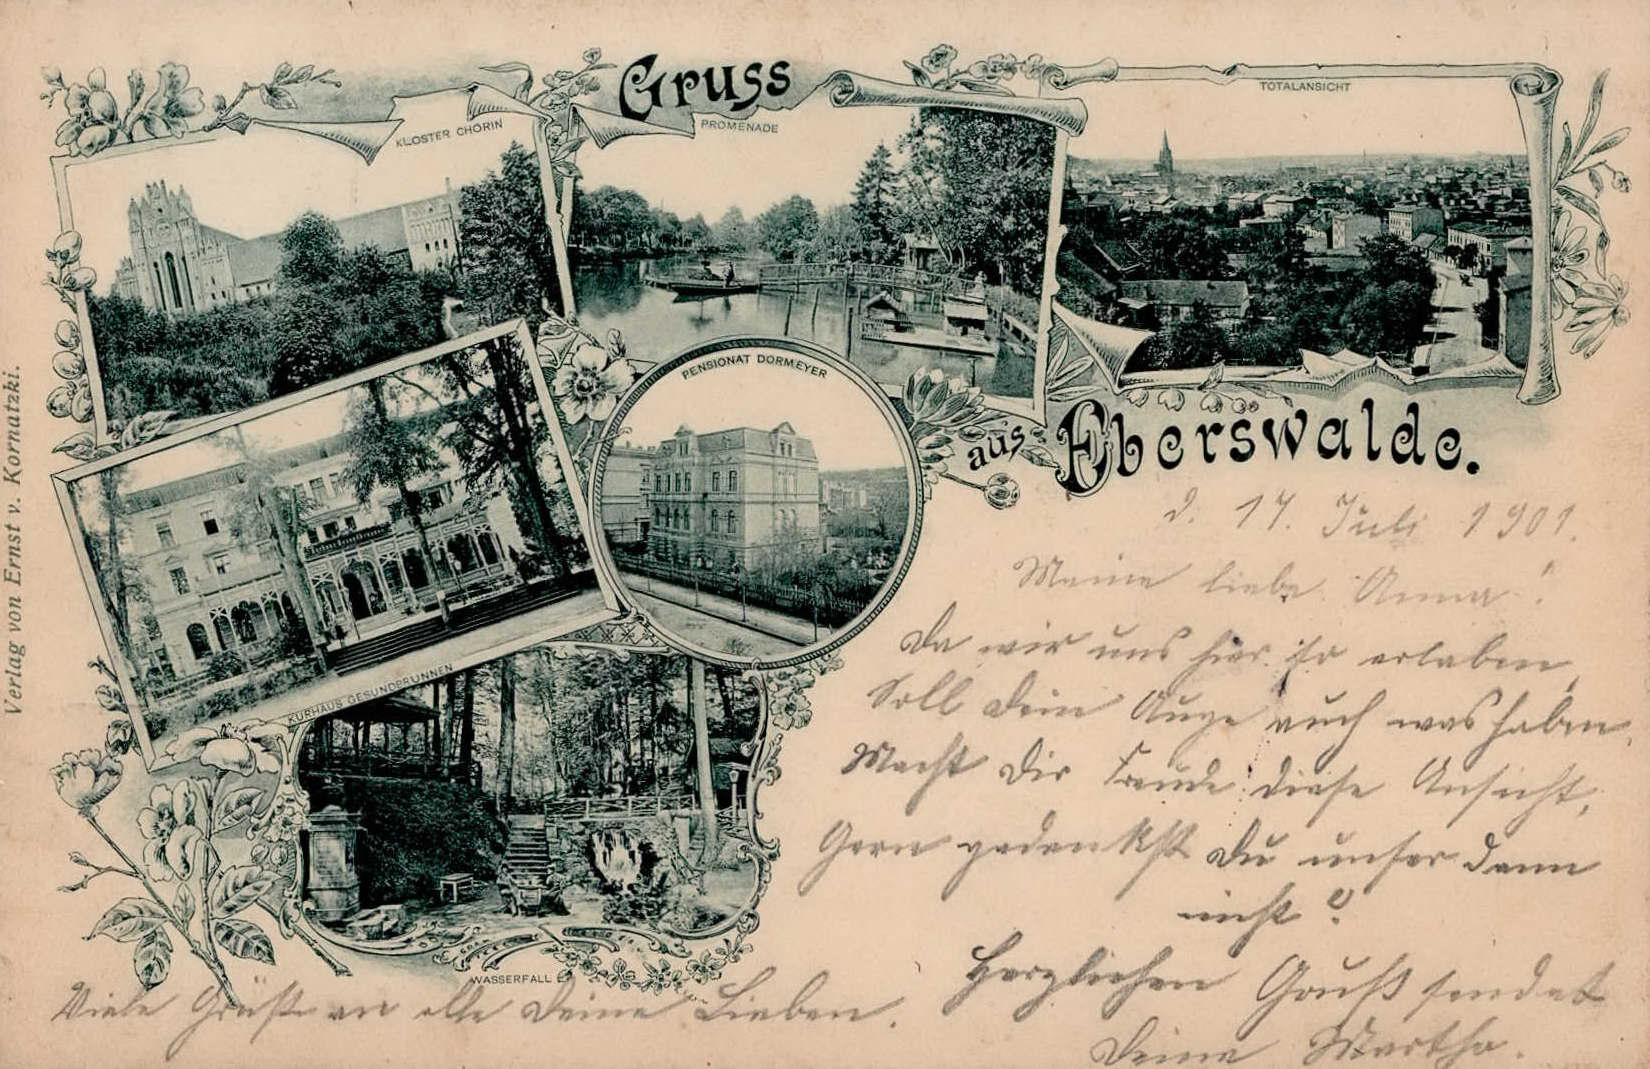 Gruss
aus Eberswalde.
KLOSTER CHORIN
PROMENADE
TOTALANSICHT
PENSIONAT DORMEYER
KURHAUS GESUNDBRUNNEN
WASSERFALL
Verlag von Ernst v. Kornatzki.
d. 17. Juli 1901.
Meine liebe Anna!
Da wir uns hier so erlaben,
Soll Dein Auge auch was haben,
Macht Dir Freude diese Ansicht,
Gern gedenkst Du unser dann
nicht?
Herzlichen Gruß sendet
Deine Martha.
Viele Grüße an alle Deine Lieben.